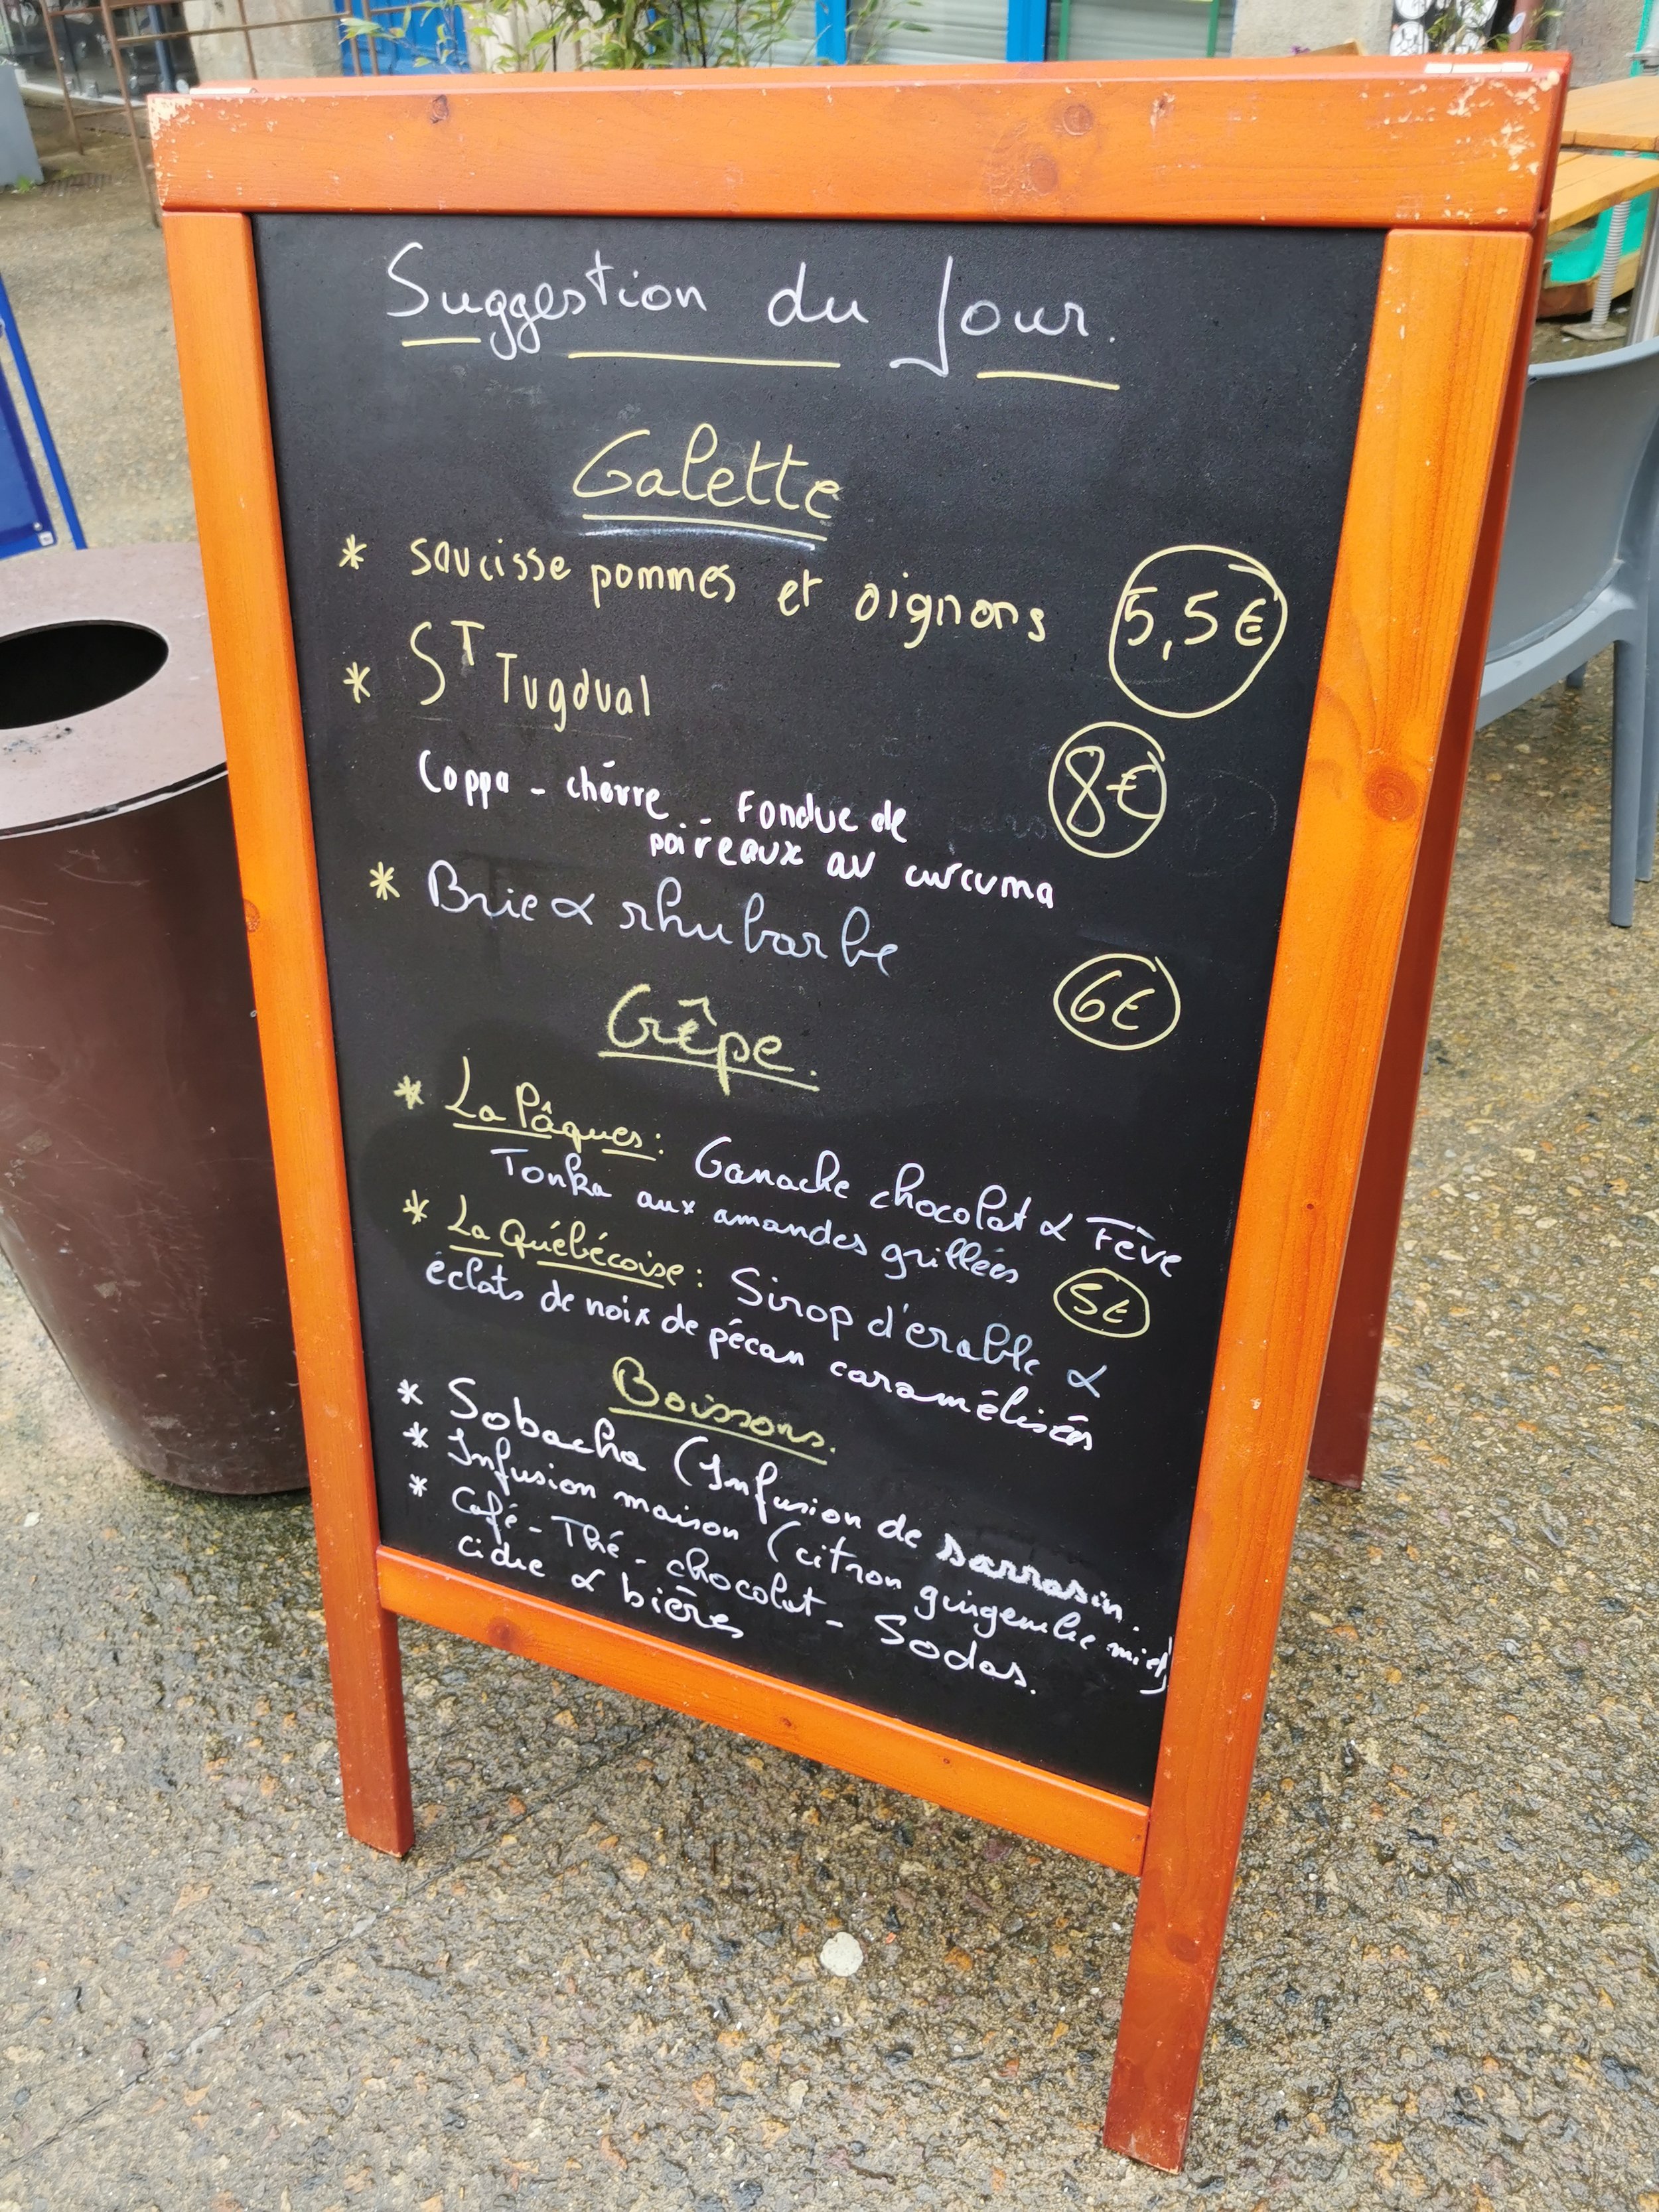 Suggestion du Jour.
Galette
* saucisse pommes et oignons 5,5€
* ST Tugdual
Coppa - chèvre - Fondue de 8€
poireaux au curcuma
* Brie & rhubarbe
6€
Crêpe.
* La Pâques: Ganache chocolat & Fève
Tonka aux amandes grillées
* La Québécoise: Sirop d'érable & 5€
éclats de noix de pécan caramélisés
Boissons.
* Sobacha (Infusion de sarrasin
* Infusion maison (citron gingembre miel)
* Café - Thé - chocolat - Sodas.
cidre & bières